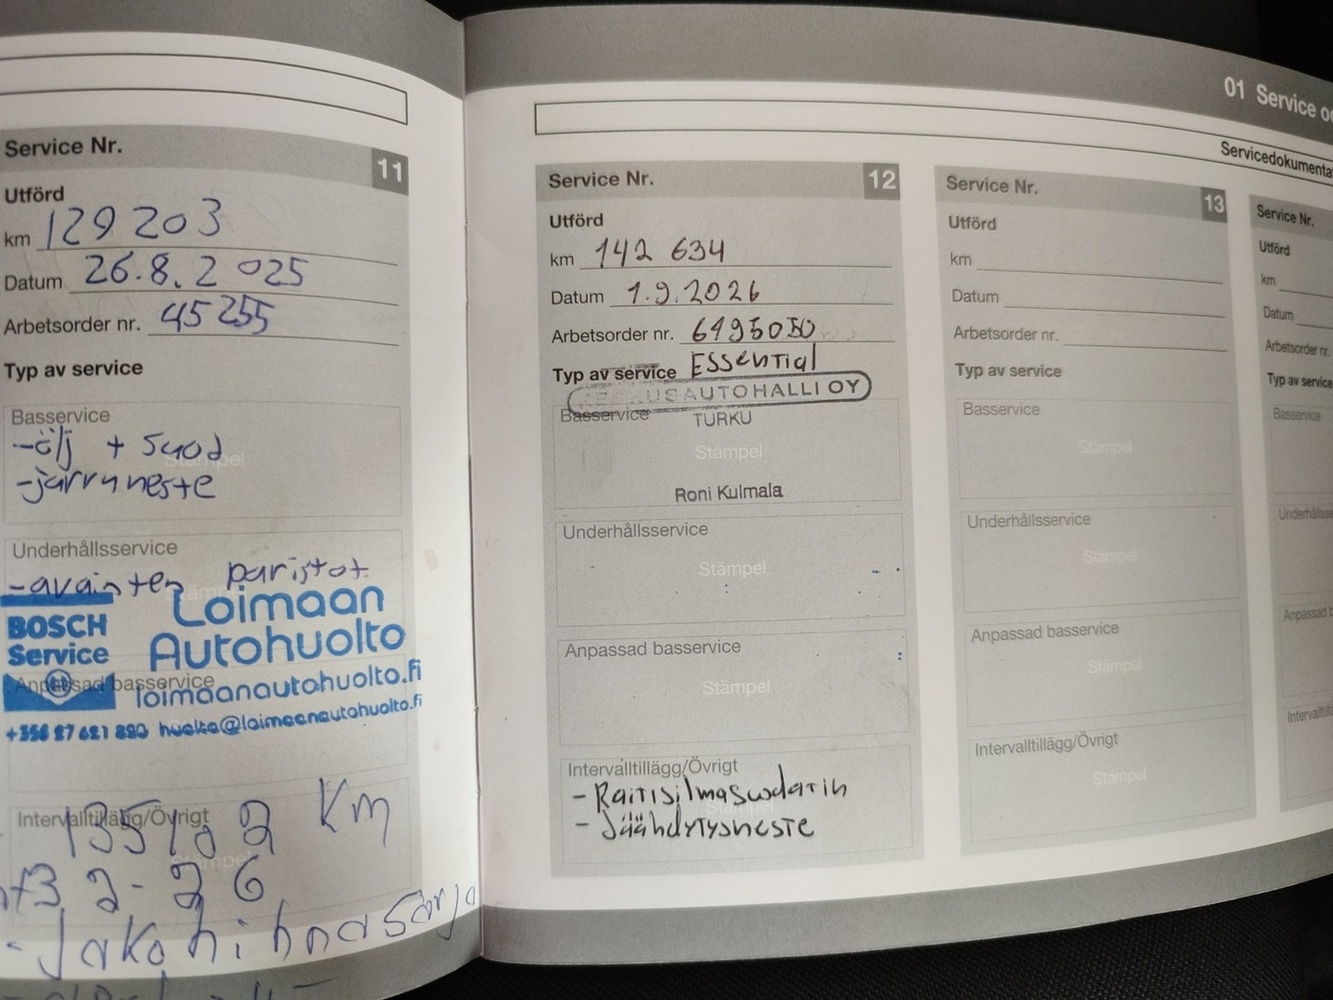 Service Nr. 11
Utförd
km 129 203
Datum 26.8.2025
Arbetsorder nr. 45255
Typ av service
Basservice
-ölj + suod
Stämpel
-jarruneste
Underhållsservice
-avainten paristot
Stämpel
BOSCH
Service
Loimaan
Autohuolto
Anpassad basservice
loimaanautohuolto.fi
huolto@loimaanautohuolto.fi
Intervalltillägg/Övrigt
135102 km
Stämpel
2-26
-Jakohihnasarja
01 Service
Service Nr. 12
Utförd
km 142 634
Datum 1.9.2026
Arbetsorder nr. 6495050
Typ av service Essential
AUTOHALLI OY
Basservice
TURKU
Stämpel
Roni Kulmala
Underhållsservice
Stämpel
Anpassad basservice
Stämpel
Intervalltillägg/Övrigt
- Raitisilmasuodatin
Stämpel
- Jäähdytysneste
Service Nr. 13
Utförd
km
Datum
Arbetsorder nr.
Typ av service
Basservice
Stämpel
Underhållsservice
Stämpel
Anpassad basservice
Stämpel
Intervalltillägg/Övrigt
Stämpel
Service Nr.
Utförd
km
Datum
Arbetsorder nr.
Typ av service
Basservice